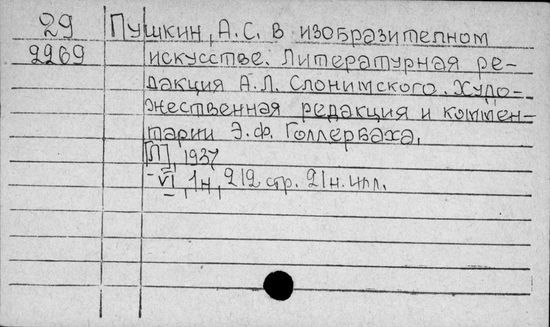 29 Пушкин, А.С. в изобразителном
2269 искусстве. Литературная ре-
дакция А.Л. Слонимского. Худо-
жественная редакция и коммен-
тарии Э.Ф. Голлербаха.
[Л], 1937
VI, 1н, 212 стр. 21н. илл.